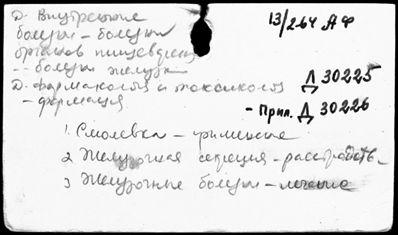 Д. Внутренние
болезни - болезни
органов пищеварения
-- болезни желудка
Д. Фармакология и токсикология
- фармация
13/264 АФ
Д 30225
- Прил. Д 30226
1. Смолевка - применение
2 Желудочная секреция - расстройств.
3 Желудочные болезни - лечение